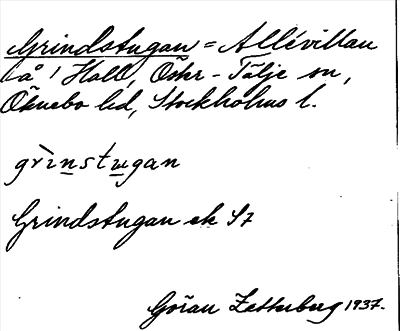 Grindstugan = Allévillan
å 1 Hall, Öster-Tälje sn,
Öknebo hd, Stockholms l.
grinstugan
Grindstugan ek 57
Göran Zetterberg 1937.